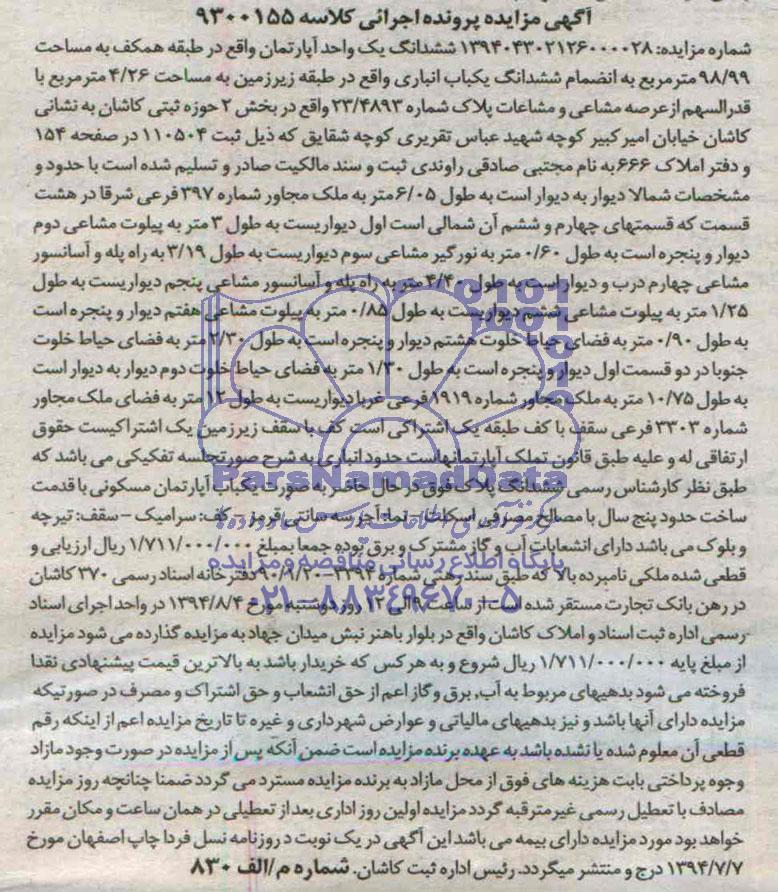 آگهی مزایده پرونده اجرائی کلاسه ۹۳۰۰۱۵۵
شماره مزایده: ۱۳۹۴۰۴۳۰۲۱۲۶۰۰۰۰۲۸ ششدانگ یک واحد آپارتمان واقع در طبقه همکف به مساحت
۹۸/۹۹ مترمربع به انضمام ششدانگ یکباب انباری واقع در طبقه زیرزمین به مساحت ۴/۲۶ مترمربع با
قدرالسهم از عرصه مشاعی و مشاعات پلاک شماره ۲۳/۴۸۹۳ واقع در بخش ۲ حوزه ثبتی کاشان به نشانی
کاشان خیابان امیرکبیر کوچه شهید عباس تقریری کوچه شقایق که ذیل ثبت ۱۱۰۵۰۴ در صفحه ۱۵۴
و دفتر املاک ۶۶۶ به نام مجتبی صادقی راوندی ثبت و سند مالکیت صادر و تسلیم شده است با حدود و
مشخصات شمالا دیوار به دیوار است به طول ۶/۰۵ متر به ملک مجاور شماره ۳۹۷ فرعی شرقا در هشت
قسمت که قسمتهای چهارم و ششم آن شمالی است اول دیواریست به طول ۳ متر به پیلوت مشاعی دوم
دیوار و پنجره است به طول ۰/۶۰ متر به نورگیر مشاعی سوم دیواریست به طول ۳/۱۹ به راه پله و آسانسور
مشاعی چهارم درب و دیوار است به طول ۴/۴۰ متر به راه پله و آسانسور مشاعی پنجم دیواریست به طول
۱/۲۵ متر به پیلوت مشاعی ششم دیواریست به طول ۰/۸۵ متر به پیلوت مشاعی هفتم دیوار و پنجره است
به طول ۰/۹۰ متر به فضای حیاط خلوت هشتم دیوار و پنجره است به طول ۲/۳۰ متر به فضای حیاط خلوت
جنوبا در دو قسمت اول دیوار و پنجره است به طول ۱/۳۰ متر به فضای حیاط خلوت دوم دیوار به دیوار است
به طول ۱۰/۷۵ متر به ملک مجاور شماره ۱۹۱۹ فرعی غربا دیواریست به طول ۱۲ متر به فضای ملک مجاور
شماره ۳۳۰۳ فرعی سقف با کف طبقه یک اشتراکی است کف با سقف زیرزمین یک اشتراکیست حقوق
ارتفاقی له و علیه طبق قانون تملک آپارتمانهاست حدود انباری به شرح صورتجلسه تفکیکی می باشد که
طبق نظر کارشناس رسمی ششدانگ پلاک فوق در حال حاضر به صورت یکباب آپارتمان مسکونی با قدمت
ساخت حدود پنج سال با مصالح مصرفی اسکلت – نما: آجر سه سانتی قرمز – کف: سرامیک – سقف: تیرچه
و بلوک می باشد دارای انشعابات آب و گاز مشترک و برق بوده جمعا بمبلغ ۱/۷۱۱/۰۰۰/۰۰۰ ریال ارزیابی و
قطعی شده ملکی نامبرده بالا که طبق سند رهنی شماره ۳۳۹۴–۹۰/۹/۲۰ دفترخانه اسناد رسمی ۳۷۰ کاشان
در رهن بانک تجارت مستقر شده است از ساعت ۹ الی ۱۲ روز دوشنبه مورخ ۱۳۹۴/۸/۴ در واحد اجرای اسناد
رسمی اداره ثبت اسناد و املاک کاشان واقع در بلوار باهنر نبش میدان جهاد به مزایده گذارده می شود مزایده
از مبلغ پایه ۱/۷۱۱/۰۰۰/۰۰۰ ریال شروع و به هر کس که خریدار باشد به بالاترین قیمت پیشنهادی نقدا
فروخته می شود بدهیهای مربوط به آب، برق و گاز اعم از حق انشعاب و حق اشتراک و مصرف در صورتیکه
مزایده دارای آنها باشد و نیز بدهیهای مالیاتی و عوارض شهرداری و غیره تا تاریخ مزایده اعم از اینکه رقم
قطعی آن معلوم شده یا نشده باشد به عهده برنده مزایده است ضمن آنکه پس از مزایده در صورت وجود مازاد
وجوه پرداختی بابت هزینه های فوق از محل مازاد به برنده مزایده مسترد می گردد ضمنا چنانچه روز مزایده
مصادف با تعطیل رسمی غیرمترقبه گردد مزایده اولین روز اداری بعد از تعطیلی در همان ساعت و مکان مقرر
خواهد بود مورد مزایده دارای بیمه می باشد این آگهی در یک نوبت در روزنامه نسل فردا چاپ اصفهان مورخ
۱۳۹۴/۷/۷ درج و منتشر میگردد. رئیس اداره ثبت کاشان. شماره م/الف ۸۳۰
ParsNamadData
پایگاه اطلاع رسانی مناقصه و مزایده
۰۲۱-۸۸۳۴۹۶۷۰-۵